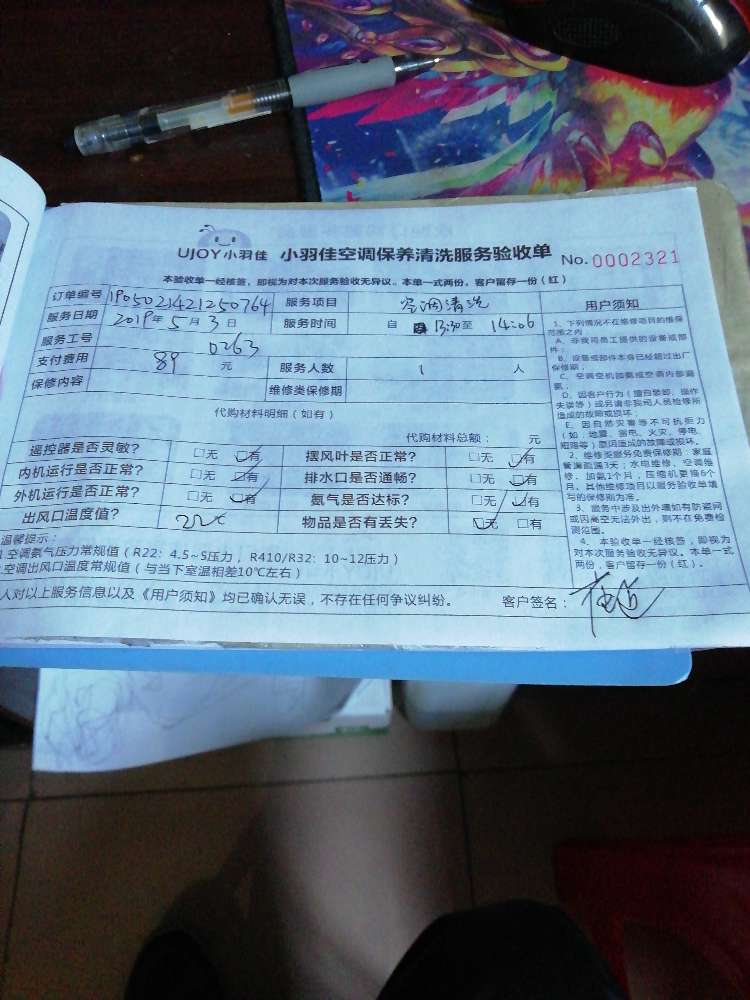 UJOY小羽佳 小羽佳空调保养清洗服务验收单 No. 0002321
本验收单一经核签，即视为对本次服务验收无异议。本单一式两份，客户留存一份（红）
订单编号 1905021421250764 服务项目 空调清洗
服务日期 2019年5月3日 服务时间 自 13:30至 14:06
服务工号 0263
支付费用 89 元 服务人数 1 人
保修内容 维修类保修期
代购材料明细（如有）
代购材料总额： 元
遥控器是否灵敏? □无 □有 摆风叶是否正常? □无 □有
内机运行是否正常? □无 □有 排水口是否通畅? □无 □有
外机运行是否正常? □无 □有 氨气是否达标? □无 □有
出风口温度值? 物品是否有丢失? □无 □有
温馨提示：
1.空调氨气压力常规值（R22：4.5~5压力，R410/R32：10~12压力）
.空调出风口温度常规值（与当下室温相差10℃左右）
人对以上服务信息以及《用户须知》均已确认无误，不存在任何争议纠纷。 客户签名：
用户须知
1、下列情况不在维修项目的维保
范围之内
A、非我司员工提供的设备或部
件；
B、设备或部件本身已经超过出厂
保修期；
C、空调空机加氨或空调内部漏
氨；
D、因客户行为（擅自装卸、操作
失误等）或另请非我司人员检修所
造成的故障或损坏；
E、因自然灾害等不可抗力
（如：地震、雷电、火灾、停电、
短路等）原因造成的故障或损坏。
2、维修类服务免费保修期：家庭
管道疏通3天；水电维修、空调维
修、加氨1个月；压缩机更换6个
月。其他维修项目以服务验收单填
写的保修期为准。
3、服务中涉及出外墙如有防盗网
或因高空无法外出，则不在免费检
测范围。
4、本验收单一经核签，即视为
对本次服务验收无异议。本单一式
两份，客户留存一份（红）。